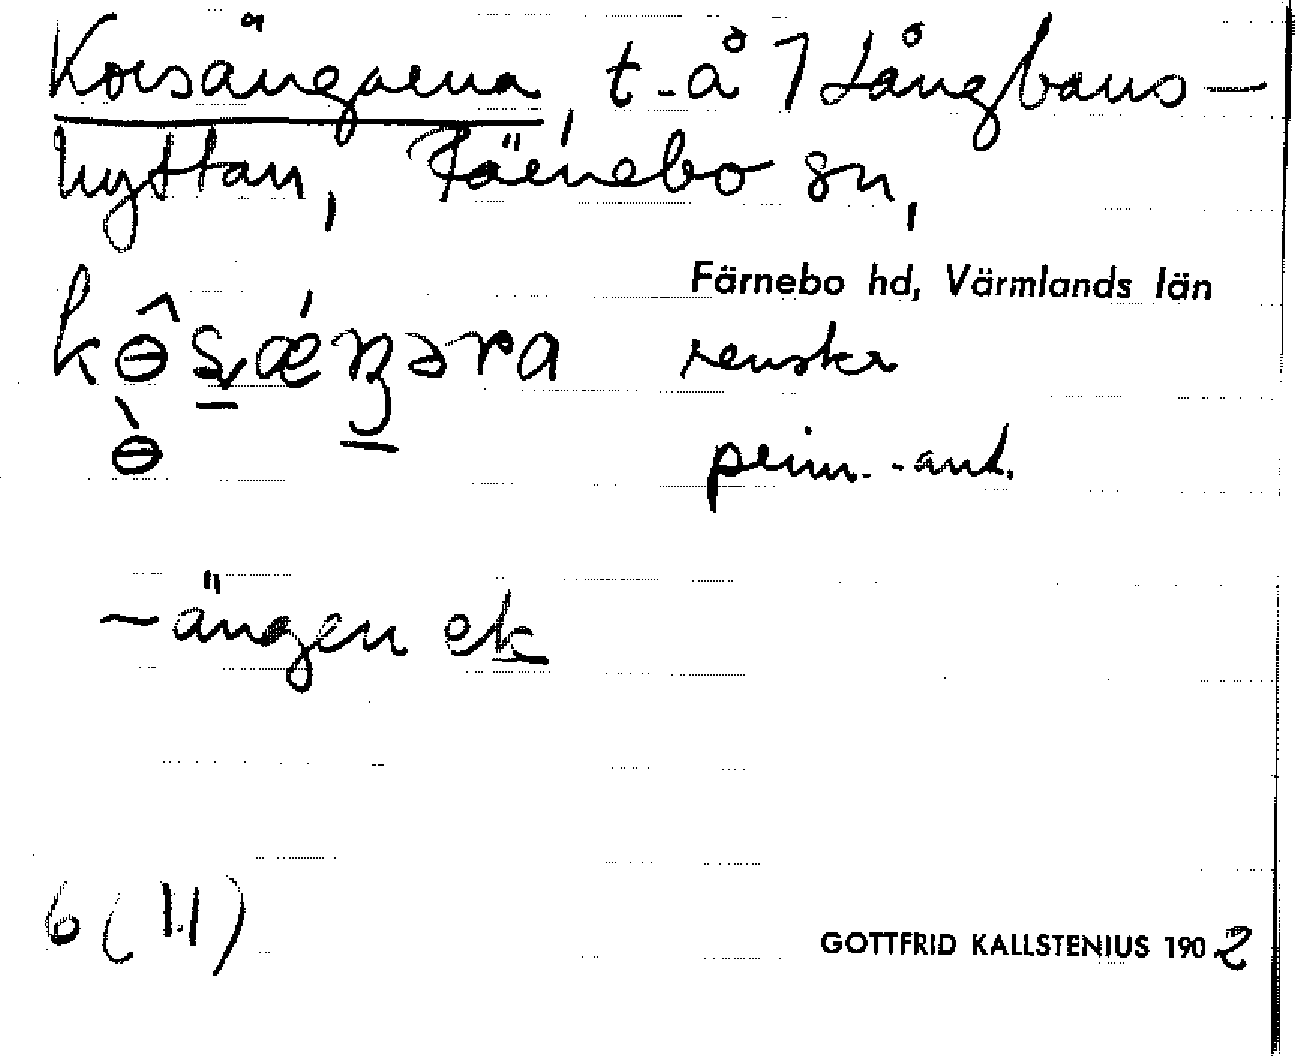 Korsängarna, t. å 7 Långbans-
hyttan, Färnebo sn,
Färnebo hd, Värmlands län
renskr
prim.-ant.
-ängen ek
6 (1.1)
GOTTFRID KALLSTENIUS 1902